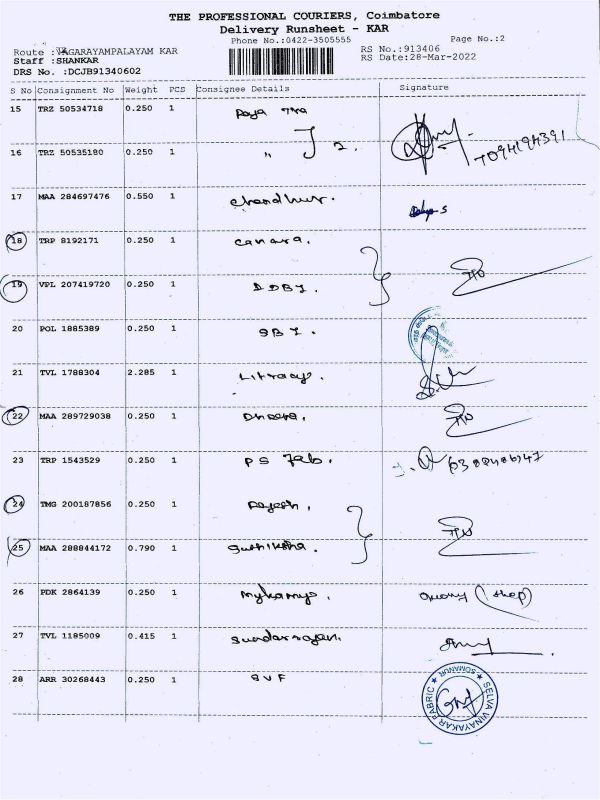 THE PROFESSIONAL COURIERS, Coimbatore
Delivery Runsheet - KAR
Phone No.:0422-3505555
Page No.:2
Route :VAGARAYAMPALAYAM KAR
RS No.:913406
Staff :SHANKAR
RS Date:28-Mar-2022
DRS No. :DCJB91340602
S No Consignment No Weight PCS Consignee Details Signature
15 TRZ 50534718 0.250 1
16 TRZ 50535180 0.250 1 " 2.
17 MAA 284697476 0.550 1
18 TRP 8192171 0.250 1 canara.
19 VPL 207419720 0.250 1
20 POL 1885389 0.250 1 SBI.
21 TVL 1788304 2.285 1
22 MAA 289729038 0.250 1
23 TRP 1543529 0.250 1 PS Fab.
24 TMG 200187856 0.250 1 Rajesh,
25 MAA 288844172 0.790 1
26 PDK 2864139 0.250 1 (shop)
27 TVL 1185009 0.415 1
28 ARR 30268443 0.250 1 SVF
SELVA VINAYAKAR FABRIC
SOMANUR